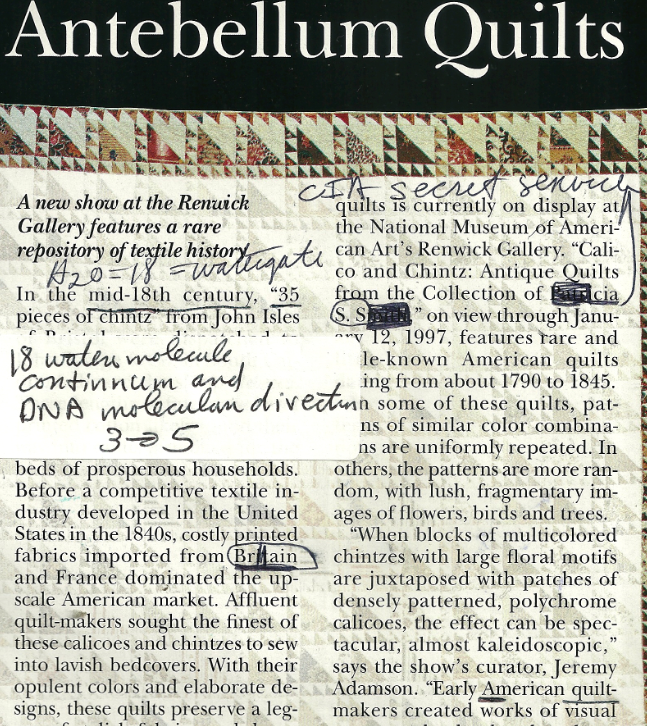 Antebellum Quilts
A new show at the Renwick
Gallery features a rare
repository of textile history
H20=18 = watergate
In the mid-18th century, "35
pieces of chintz" from John Isles
18 water molecule
continnum and
DNA molecular direction
3→5
beds of prosperous households.
Before a competitive textile in-
dustry developed in the United
States in the 1840s, costly printed
fabrics imported from Britain
and France dominated the up-
scale American market. Affluent
quilt-makers sought the finest of
these calicoes and chintzes to sew
into lavish bedcovers. With their
opulent colors and elaborate de-
signs, these quilts preserve a leg-
CIA secret service
quilts is currently on display at
the National Museum of Ameri-
can Art's Renwick Gallery. "Cali-
co and Chintz: Antique Quilts
from the Collection of Patricia
S. Smith" on view through Janu-
ary 12, 1997, features rare and
le-known American quilts
ing from about 1790 to 1845.
In some of these quilts, pat-
ns of similar color combina-
ns are uniformly repeated. In
others, the patterns are more ran-
dom, with lush, fragmentary im-
ages of flowers, birds and trees.
"When blocks of multicolored
chintzes with large floral motifs
are juxtaposed with patches of
densely patterned, polychrome
calicoes, the effect can be spec-
tacular, almost kaleidoscopic,"
says the show's curator, Jeremy
Adamson. "Early American quilt-
makers created works of visual